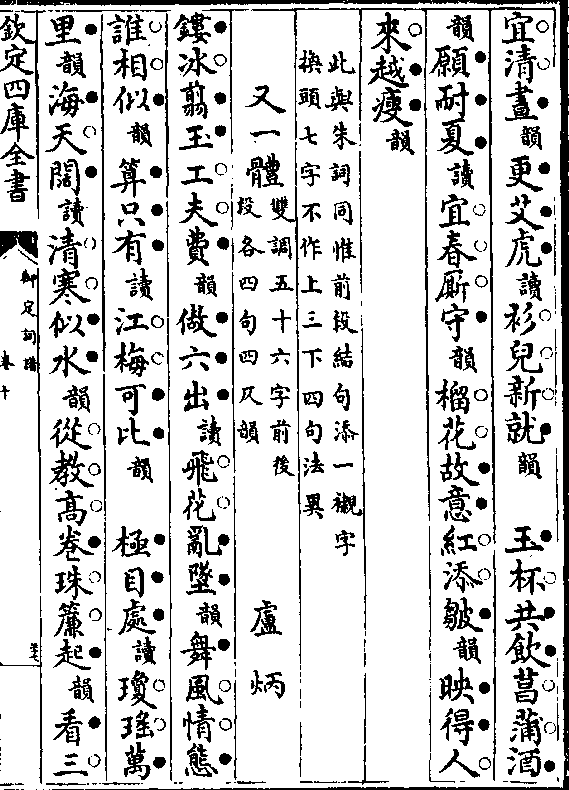 宜清晝韻更艾虎讀衫兒新就韻　玉杯共飲菖蒲酒
韻願耐夏讀宜春厮守韻榴花故意紅添皺韻映得人
來越瘦韻
此與朱詞同惟前段結句添一襯字
換頭七字不作上三下四句法異
又一體　雙調五十六字前後
段各四句四仄韻　盧炳
鏤冰翦玉工夫費韻做六出讀飛花亂墜韻舞風情態
誰相似韻算只有讀江梅可比韻　極目處讀瓊瑤萬
里韻海天闊讀清寒似水韻從教高卷珠簾起韻看三
欽定四庫全書
御定詞譜
卷十